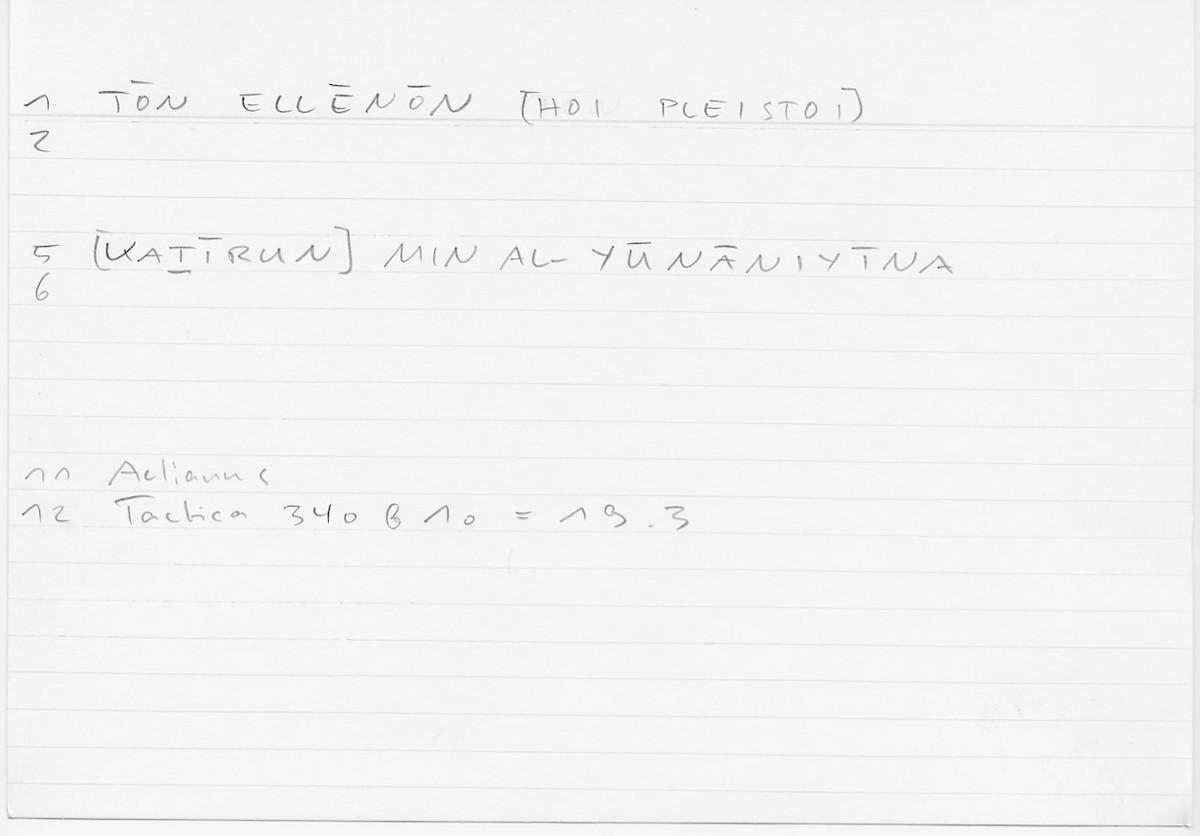 1 TŌN ELLĒNŌN [HOI PLEISTOI]
2
5 [KAṮĪRUN] MIN AL-YŪNĀNIYĪNA
6
11 Aelianus
12 Tactica 340 B 10 = 19.3